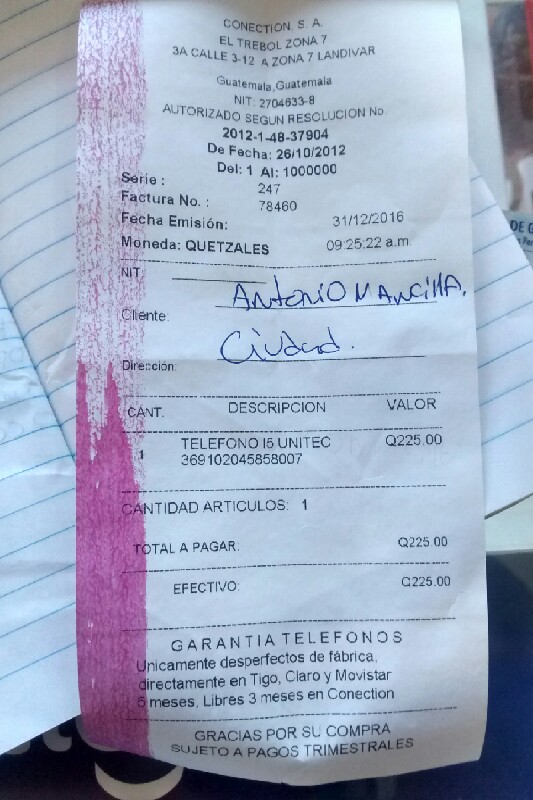 CONECTION, S. A.
EL TREBOL ZONA 7
3A CALLE 3-12 A ZONA 7 LANDIVAR
Guatemala,Guatemala
NIT: 2704633-8
AUTORIZADO SEGUN RESOLUCION No.
2012-1-48-37904
De Fecha: 26/10/2012
Del: 1 Al: 1000000
Serie : 247
Factura No. : 78460
Fecha Emisión: 31/12/2016
Moneda: QUETZALES 09:25:22 a.m.
NIT:
Cliente: Antonio Mancilla.
Dirección: Ciudad.
CANT. DESCRIPCION VALOR
1 TELEFONO I5 UNITEC Q225.00
369102045858007
CANTIDAD ARTICULOS: 1
TOTAL A PAGAR: Q225.00
EFECTIVO: Q225.00
GARANTIA TELEFONOS
Unicamente desperfectos de fábrica,
directamente en Tigo, Claro y Movistar
6 meses, Libres 3 meses en Conection
GRACIAS POR SU COMPRA
SUJETO A PAGOS TRIMESTRALES
DE